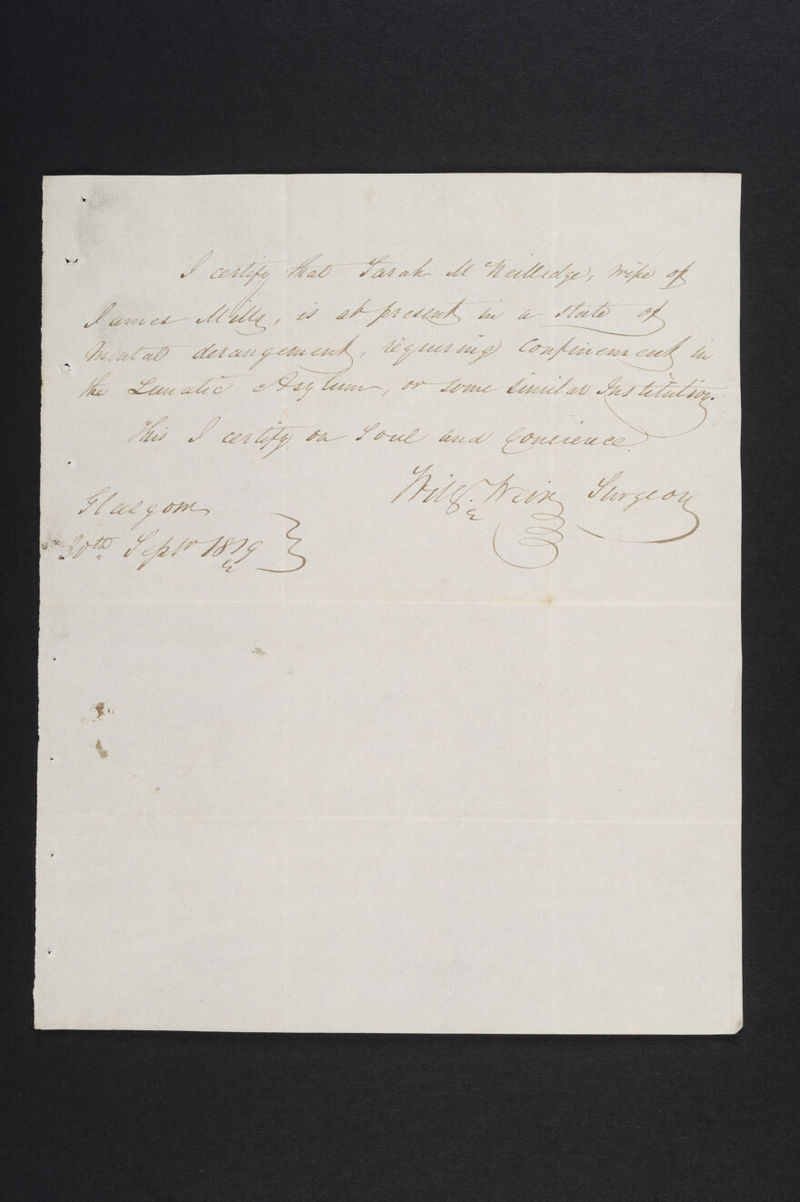 I certify that Sarah McNeilledge, wife of
James Mills, is at present in a state of
Mental derangement, requiring confinement in
the Lunatic Asylum, or some similar Institution.
This I certify on Soul and Concience
Willm. Weir Surgeon
Glasgow
20th Septr 1819